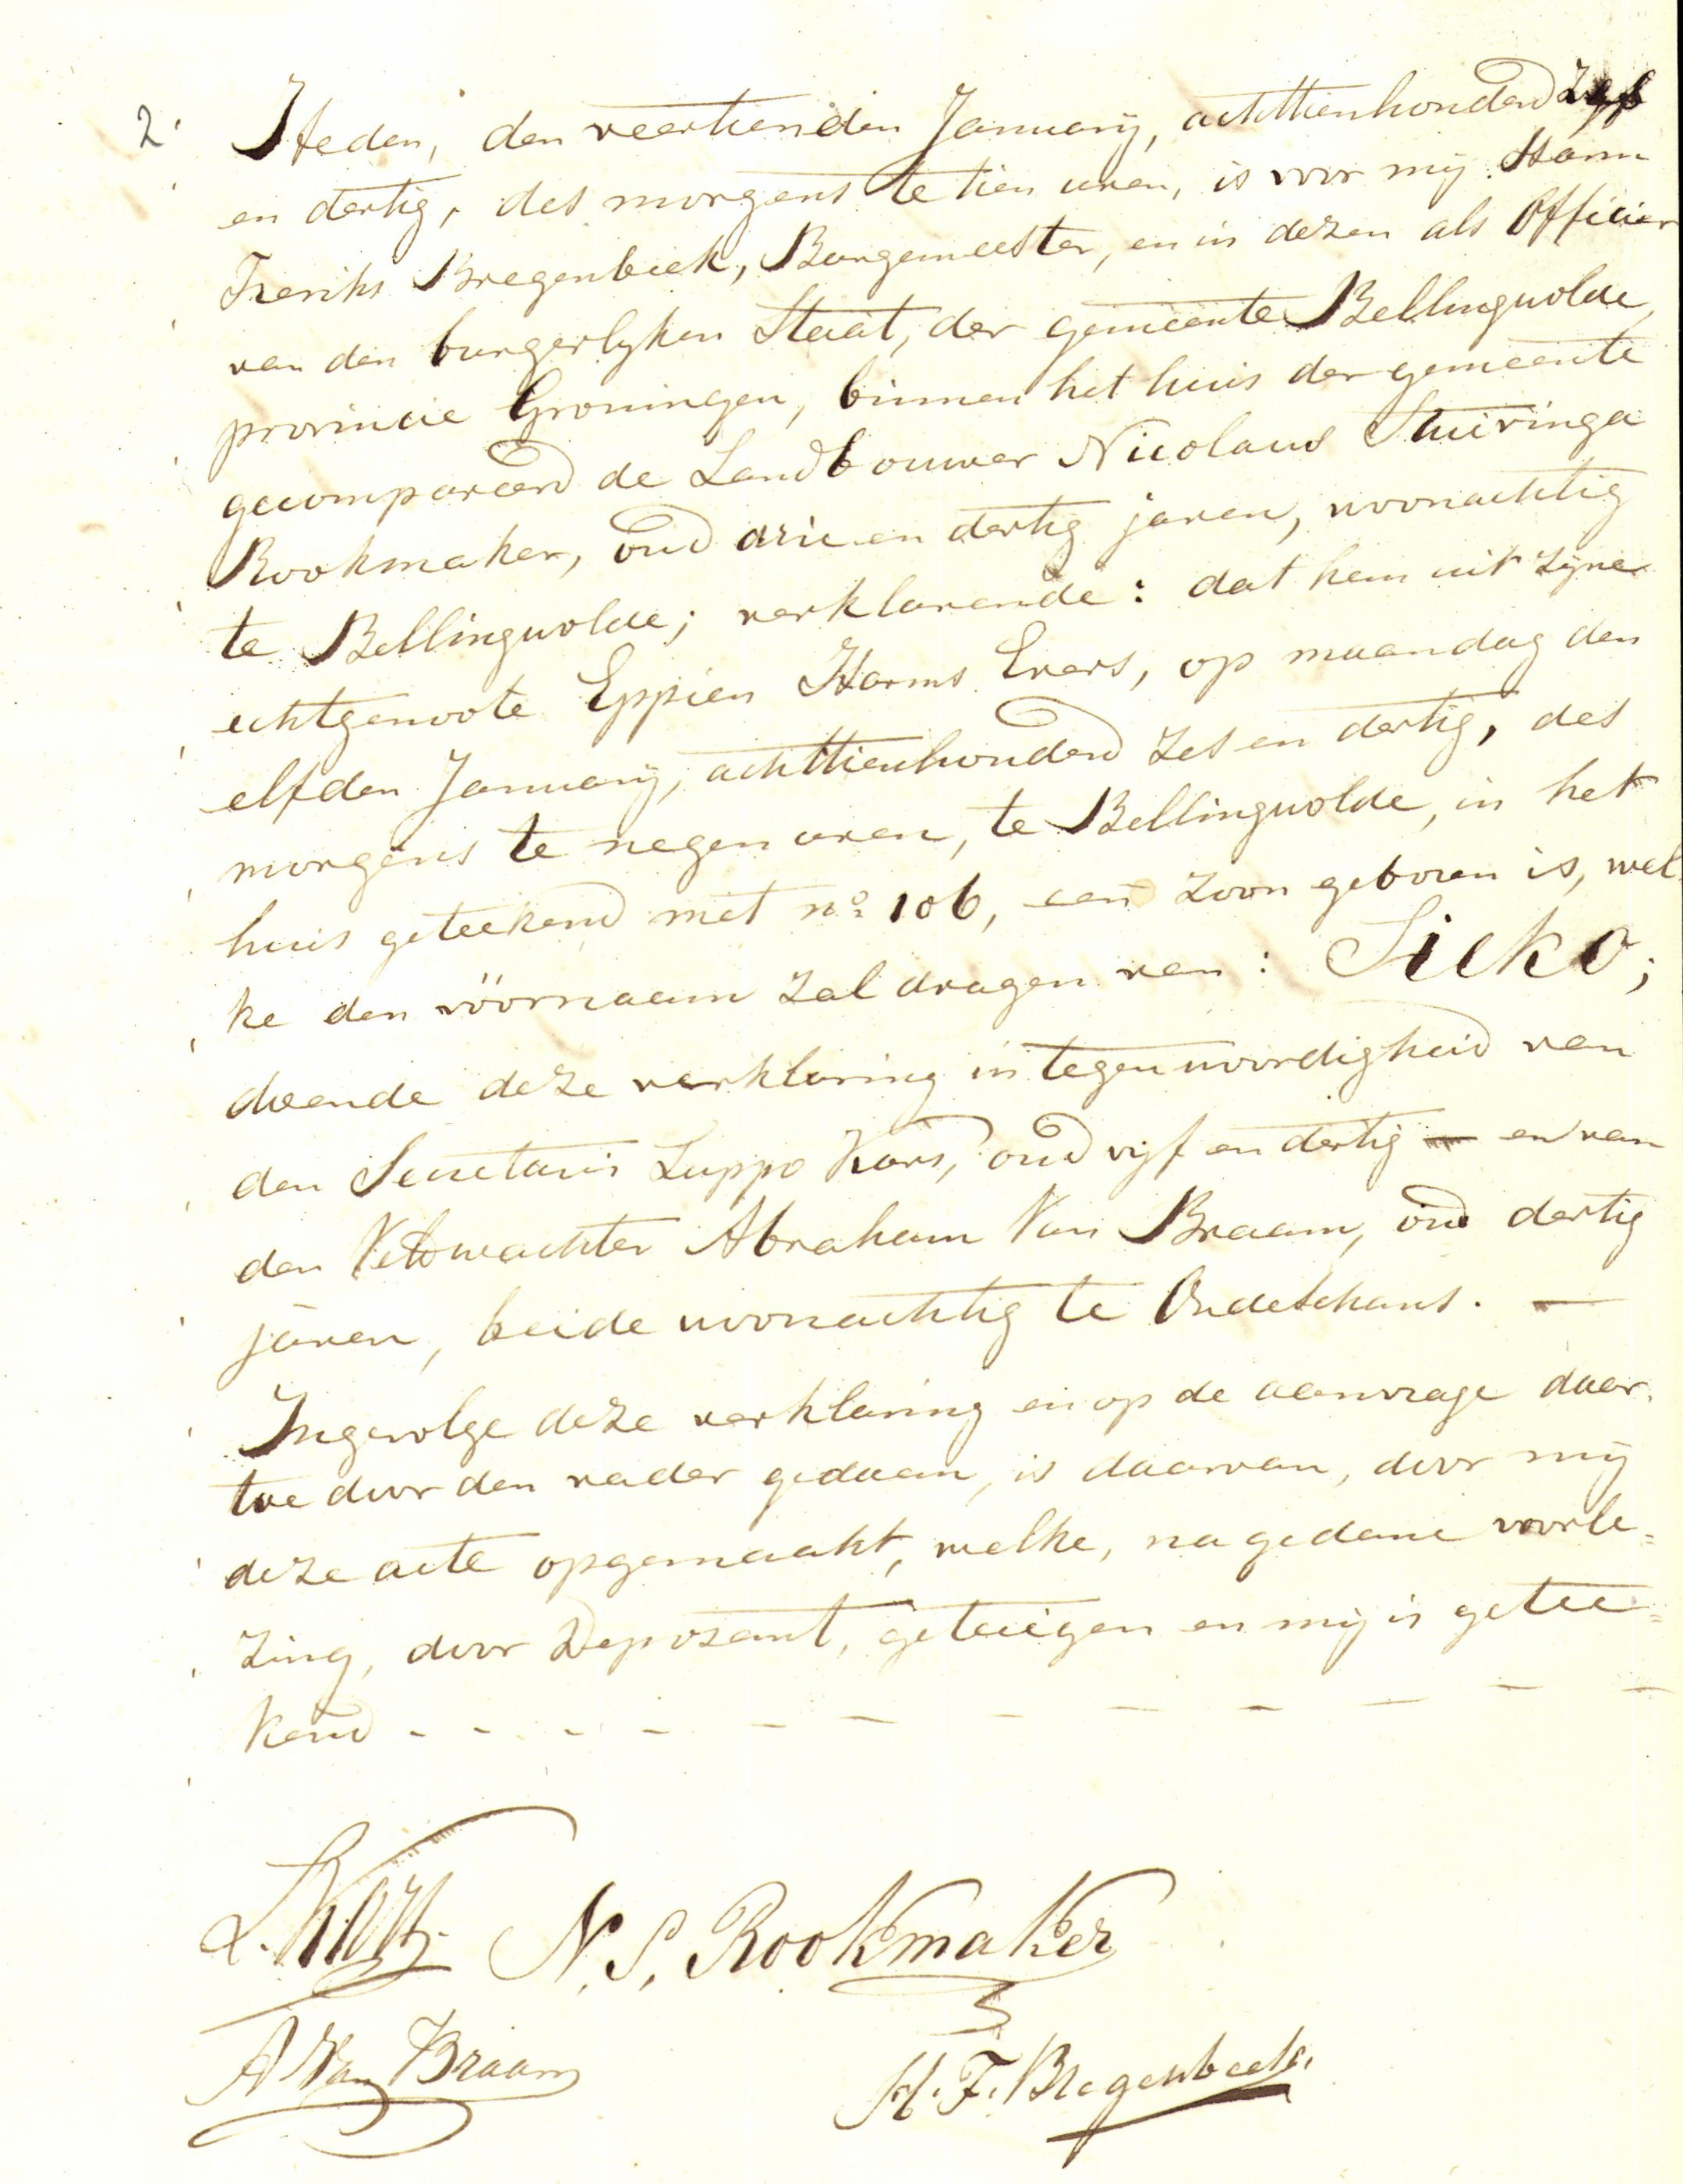 2.
Heden, den veertienden January, achttienhonderd zes
en dertig, des morgens te tien uren, is voor mij Harm
Freriks Bregenbeek, Burgemeester, en in dezen als Officier
van den burgerlyken Staat, der gemeente Bellingwolde,
provincie Groningen, binnen het huis der gemeente
gecompareerd de Landbouwer Nicolaus Stuivinga
Rookmaker, oud drie en dertig jaren, woonachtig
te Bellingwolde; verklarende: dat hem uit zijne
echtgenoote Eppien Harms Evers, op maandag den
elfden January, achttienhonderd zes en dertig, des
morgens te negen uren, te Bellingwolde, in het
huis geteekend met no. 106, een zoon geboren is, wel-
ke den vöornaam zal dragen van: Sicko;
doende deze verklaring in tegenwoordigheid van
den Secretaris Luppo Kars, oud vijf en dertig — en van
den Veldwachter Abraham Van Braam, oud dertig
jaren, beide woonachtig te Oudeschans. —
Ingevolge deze verklaring en op de aanvrage daar-
toe door den vader gedaan, is daarvan, door mij
deze acte opgemaakt, welke, na gedane voorle=
zing, door Deposant, getuigen en mij is getee=
kend - - - - - - - - - - -
N. S. Rookmaker
A Van Braam
H. F. Bregenbeek.